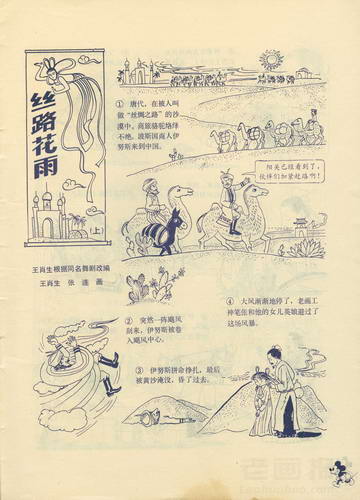 丝路花雨
(上)
王肖生根据同名舞剧改编
王肖生 张 连 画
① 唐代,在被人叫
做“丝绸之路”的沙
漠中,商旅骆驼络绎
不绝。波斯国商人伊
努斯来到中国。
阳关已经看到了,
伙伴们加紧赶路啊!
② 突然一阵飓风
刮来,伊努斯被卷
入飓风中心。
③ 伊努斯拼命挣扎,最后
被黄沙淹没,昏了过去。
④ 大风渐渐地停了,老画工
神笔张和他的女儿英娘避过了
这场风暴。
老画报